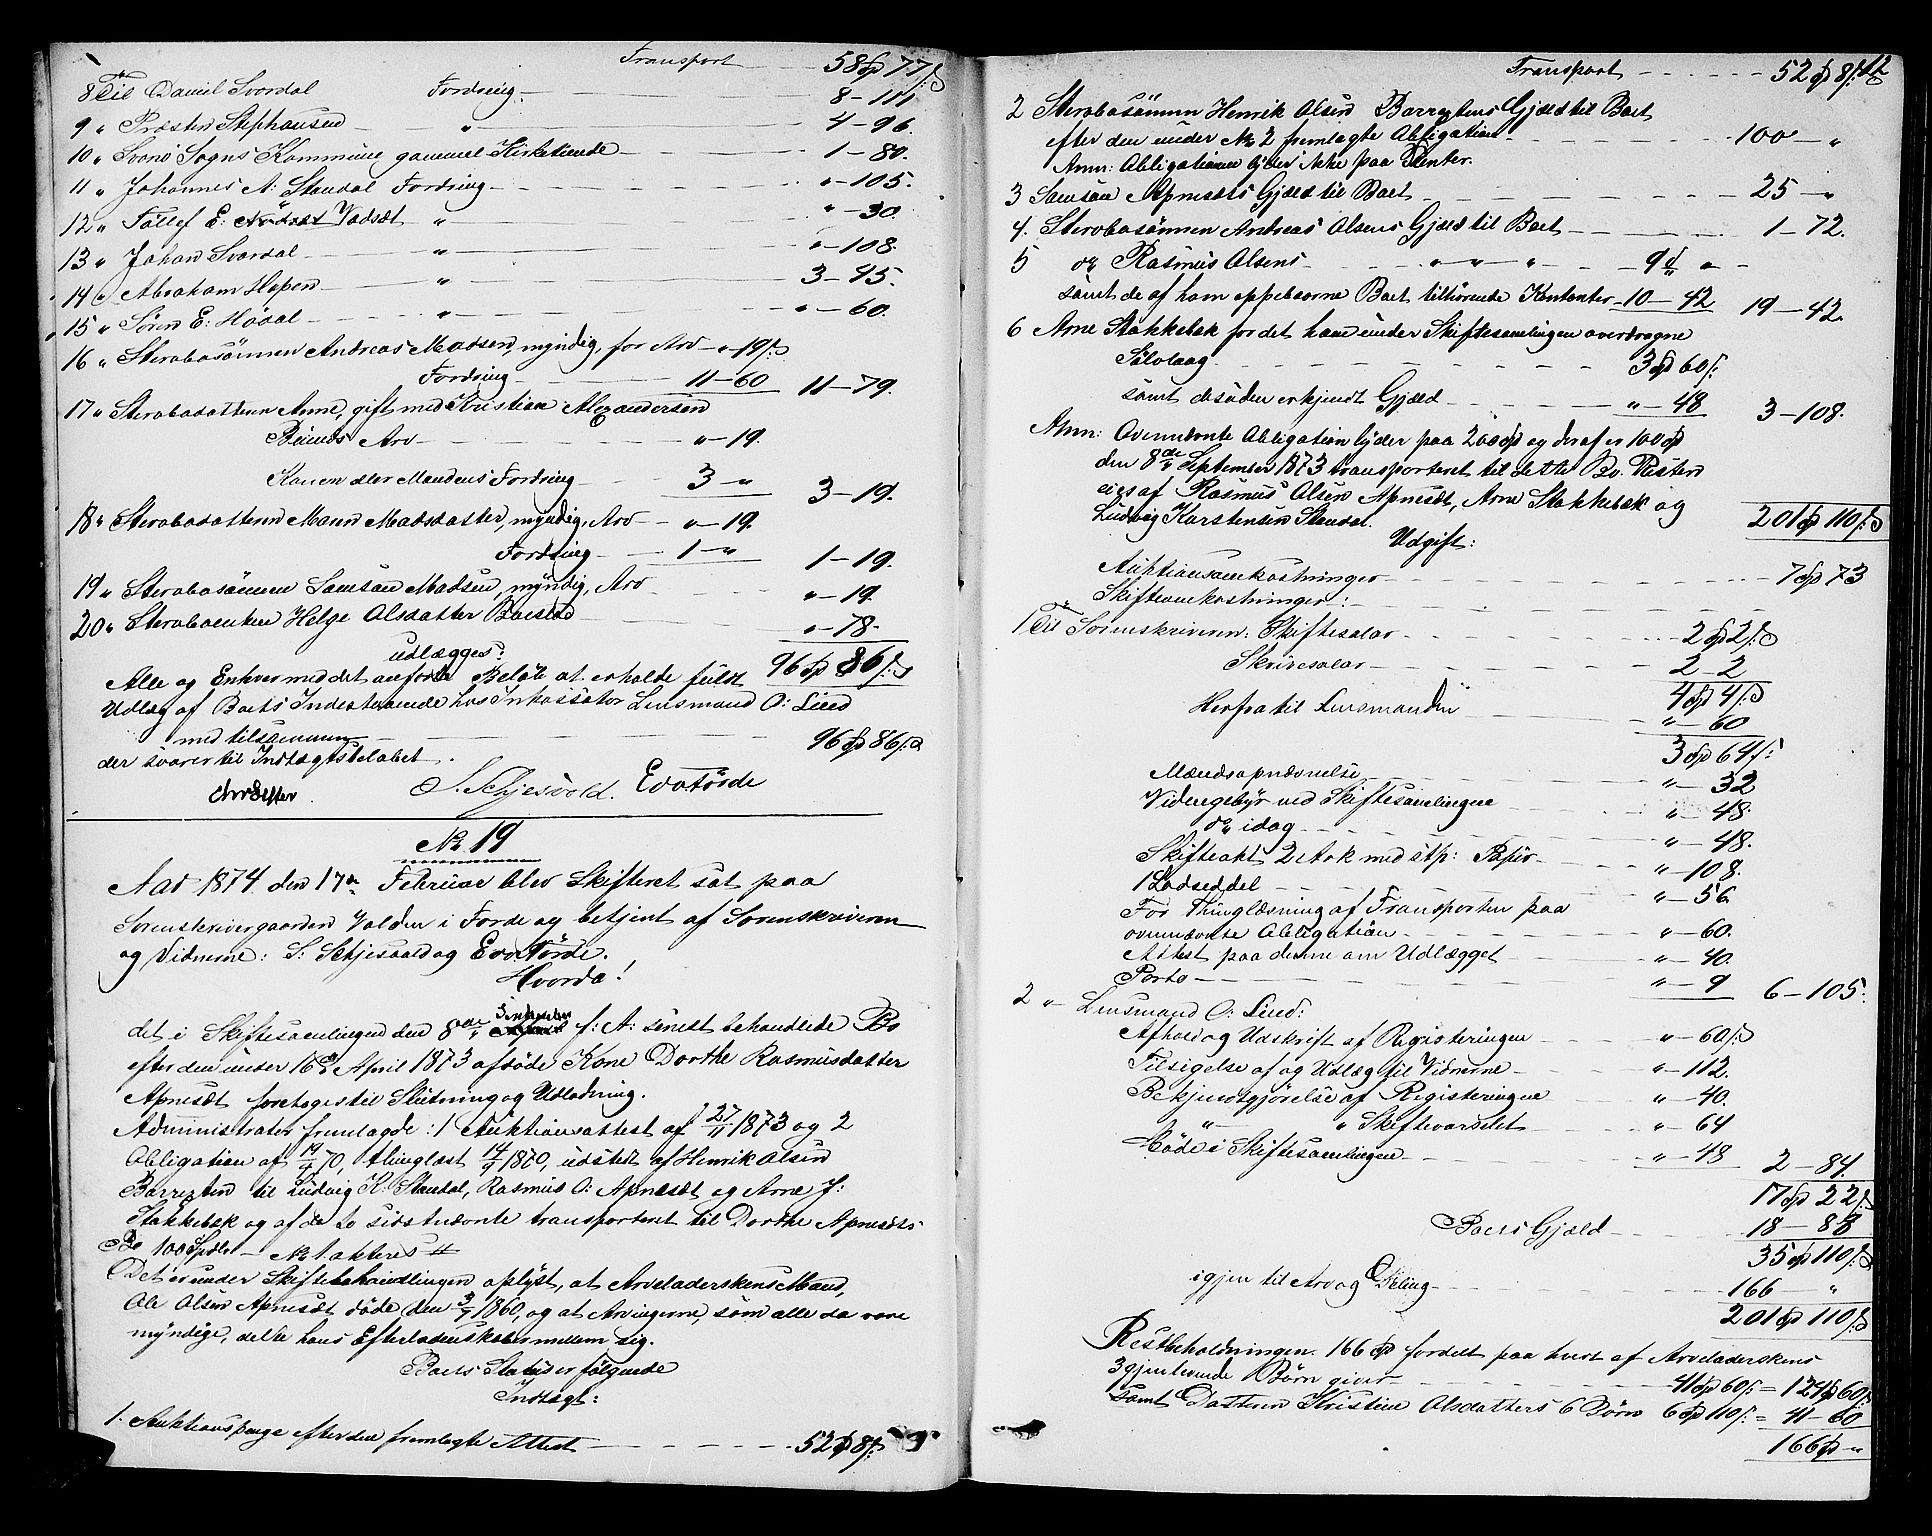 Transport — 58 Sp 77 s
8 Til Daniel Svordal Fordring — 8 – 111
9 " Præsten Stephansen — " — 4 – 96.
10 " Svanø Sogns Kommune gammel Kirketiende — 1 – 80.
11 " Johannes A: Standal Fordring — " – 105.
12 " Tollef E: Vadsæt " — " – 30.
13 " Johan Svardal — " — " – 108.
14 " Abraham Hopen — " — 3 – 45.
15 " Sören E: Hødal — " — " – 60.
16 " Sterbosönnen Andreas Madsen, myndig, for Arv — " – 19 s
Fordring — 11 – 60 11 – 79.
17 " Sterbodatteren Anne, gift med Kristian Alexandersen
Arv — " – 19.
Konen eller Mandens Fordring — 3 – " 3 – 19.
18 " Sterbodatteren Maren Madsdatter, myndig, Arv — " – 19.
Fordring — 1 – " 1 – 19.
19 " Sterbosönnen Samson Madsen, myndig, Arv — " – 19.
20 " Sterboenken Helge Olsdatter — " – 78.
udlægges: 96 Sp 86 s
Alle og Enhver med det anførte Beløb at erholde fuldt
Udlæg af Boets Indestaaende hos Inkassator Lensmand O: Lied
med tilsammen — 96 Sp 86 s
der svarer til Indtægtsbeløbet.
S. Schjesvold. E
No 19
Aar 1874 den 17de Februar blev Skifteret sat paa
Sorenskrivergaarden Valden i Førde og betjent af Sorenskriveren
og Vidnerne: S: Schjesvold og E
Hvorda!
det i Skiftesamlingen den 8de f: A: senest behandlede Bo
efter den under 16de April 1873 afdøde Kone Dorthe Rasmusdatter
Apnesæt foretoges til Slutning og Udlodning.
Administrator fremlagde: 1 Auktionsattest af 27/11 1873 og 2
Obligation af 19/4 70, thinglæst 14/9 1870, udstedt af Henrik Olsen
til Ludvig K: Standal, Rasmus O: Apnesæt og Arne J:
Stakkebæk og af de to sidstnævnte transporteret til Dorthe Apnesæts
Bo 100 Spdlr — No 1. akteres #
Det er under Skiftebehandlingen oplyst, at Arveladerskens Mand,
Ole Olsen Apnesæt døde den 3/9 1860, og at Arvingerne, som alle da vare
myndige, delte hans Efterladenskaber mellem sig.
Boets Status er følgende
Indtægt:
1. Auktionspenge efter den fremlagte Attest — 52 Sp 8 s
12
Transport — 52 Sp 8 s
2 Sterbosönnen Henrik Olsen Gjæld til Boet
efter den under No 2 fremlagte Obligation — 100 – "
Anm: Obligationen lyder ikke paa Renter.
3 Samson Apnesæts Gjæld til Boet — 25 – "
4. Sterbosönnen Andreas Olsens Gjæld til Boet — 1 – 72.
5 do Rasmus Olsens — " " " — 9 Sp "
samt de af ham oppebaarne Boet tilhørende Kontanter — 10 – 42 19 – 42.
6 Arne Stakkebæk for det ham under Skiftesamlingen overdragne
— 3 Sp 60 s
samt desuden erkjendt Gjæld — " – 48 3 – 108.
Anm: Ovennævnte Obligation lyder paa 200 Sp og deraf er 100 Sp
den 8de September 1873 transporteret til dette Bo. Resten
eies af Rasmus Olsen Apnesæt, Arne Stakkebæk og
Ludvig Karstensen Standal. 201 Sp 110 s
Udgift:
Auktionsomkostninger — 7 Sp 73
Skifteomkostninger:
1 Til Sorenskriveren: Skiftesalar — 2 Sp 2 s
Skrivesalar — 2 – 2
4 Sp 4 s
Herfra til Lensmanden — " – 60
3 Sp 64 s
Mændsopnævnelse — " – 32
Vidnegebyr ved Skiftesamlingen — " – 48.
do idag — " – 48.
Skifteakt 2 Ark med stp: Papir — " – 108.
1 Lodseddel — " – 56
For Thinglæsning af Transporten paa
ovennævnte Obligation — " – 60.
Attest paa denne om Udlægget — " – 40.
Porto — " – 9 6 – 105.
2 " Lensmand O: Lied:
Afhold og Udskrift af Registeringen — " – 60 s
Tilsigelse af og Udlæg til Vidnerne — " – 112.
Bekjendtgjørelse af Registeringen — " – 40.
" — " Skiftevarselet — " – 64
Møde i Skiftesamlingen — " – 48 2 – 84.
17 Sp 22 s
Boets Gjæld — 18 – 88
35 Sp 110 s
igjen til Arv og Deling — 166 – "
201 Sp 110 s
Restbeholdningen 166 Sp fordelt paa hvert af Arveladerskens
3 gjenlevende Børn giver — 41 Sp 60 s = 124 Sp 60 s
samt Datteren Kristine Olsdatters 6 Børn 6 Sp 110 s = 41 – 60
166 Sp "